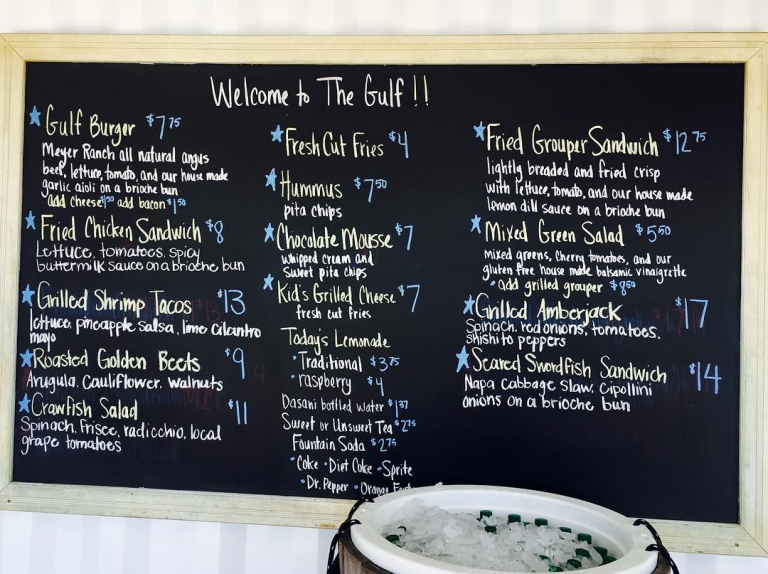 Welcome to The Gulf!!
Gulf Burger $7.75
Meyer Ranch all natural angus
beef, lettuce, tomato, and our house made
garlic aioli on a brioche bun
add cheese $.50 add bacon $1.50
Fried Chicken Sandwich $8
Lettuce, tomatoes, spicy
buttermilk sauce on a brioche bun
Grilled Shrimp Tacos $13
lettuce, pineapple salsa, lime cilantro
mayo
Roasted Golden Beets $9
Arugula, Cauliflower, walnuts
Crawfish Salad $11
Spinach, frisee, radicchio, local
grape tomatoes
Fresh Cut Fries $4
Hummus $7.50
pita chips
Chocolate Mousse $7
whipped cream and
sweet pita chips
Kid's Grilled Cheese $7
fresh cut fries
Today's Lemonade
•Traditional $3.75
•raspberry $4
Dasani bottled water $1.37
Sweet or Unsweet Tea $2.75
Fountain Soda $2.75
•Coke •Diet Coke •Sprite
•Dr. Pepper •Orange
Fried Grouper Sandwich $12.75
lightly breaded and fried crisp
with lettuce, tomato, and our house made
lemon dill sauce on a brioche bun
Mixed Green Salad $5.50
mixed greens, cherry tomatoes, and our
gluten free house made balsamic vinaigrette
•add grilled grouper $8.50
Grilled Amberjack $17
Spinach, red onions, tomatoes,
shishito peppers
Seared Swordfish Sandwich $14
Napa cabbage slaw, Cipollini
onions on a brioche bun